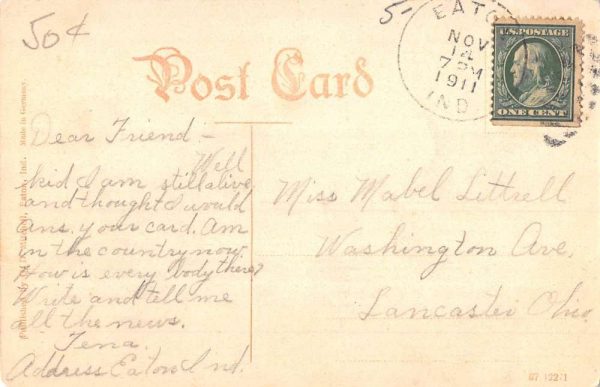 50¢
5-
EATO
NOV
14
7 PM
1911
IND
U.S. POSTAGE
ONE CENT
Post Card
Dear Friend,-
Well
kid I am still alive
and thought I would
ans. your card. Am
in the country now.
How is every body there?
Write and tell me
all the news.
Tena.
Address Eaton Ind.
Miss Mabel Littrell
Washington Ave.
Lancaster Ohio.
Published by
Eaton, Ind. Made in Germany.